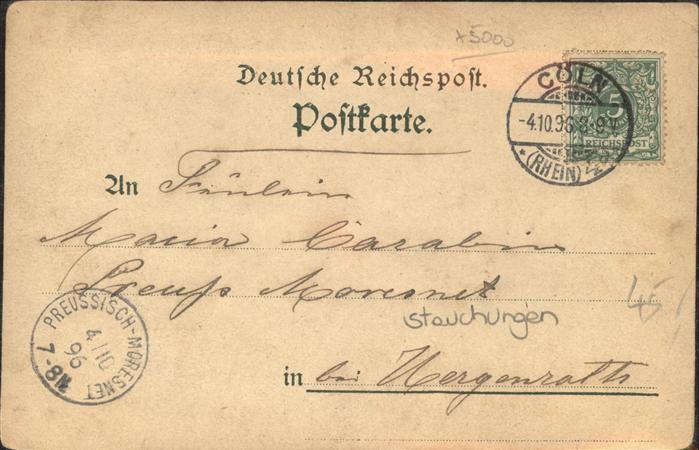 x5000
Deutsche Reichspost.
Postkarte.
CÖLN
-4.10.96.8-9V.
*(RHEIN)
5
REICHSPOST
An Fräulein
Maria Carabin
Preuß Moresnet
stauchungen
45
PREUSSISCH-MORESNET
4/10
96
7-8N
in bei Hergenrath